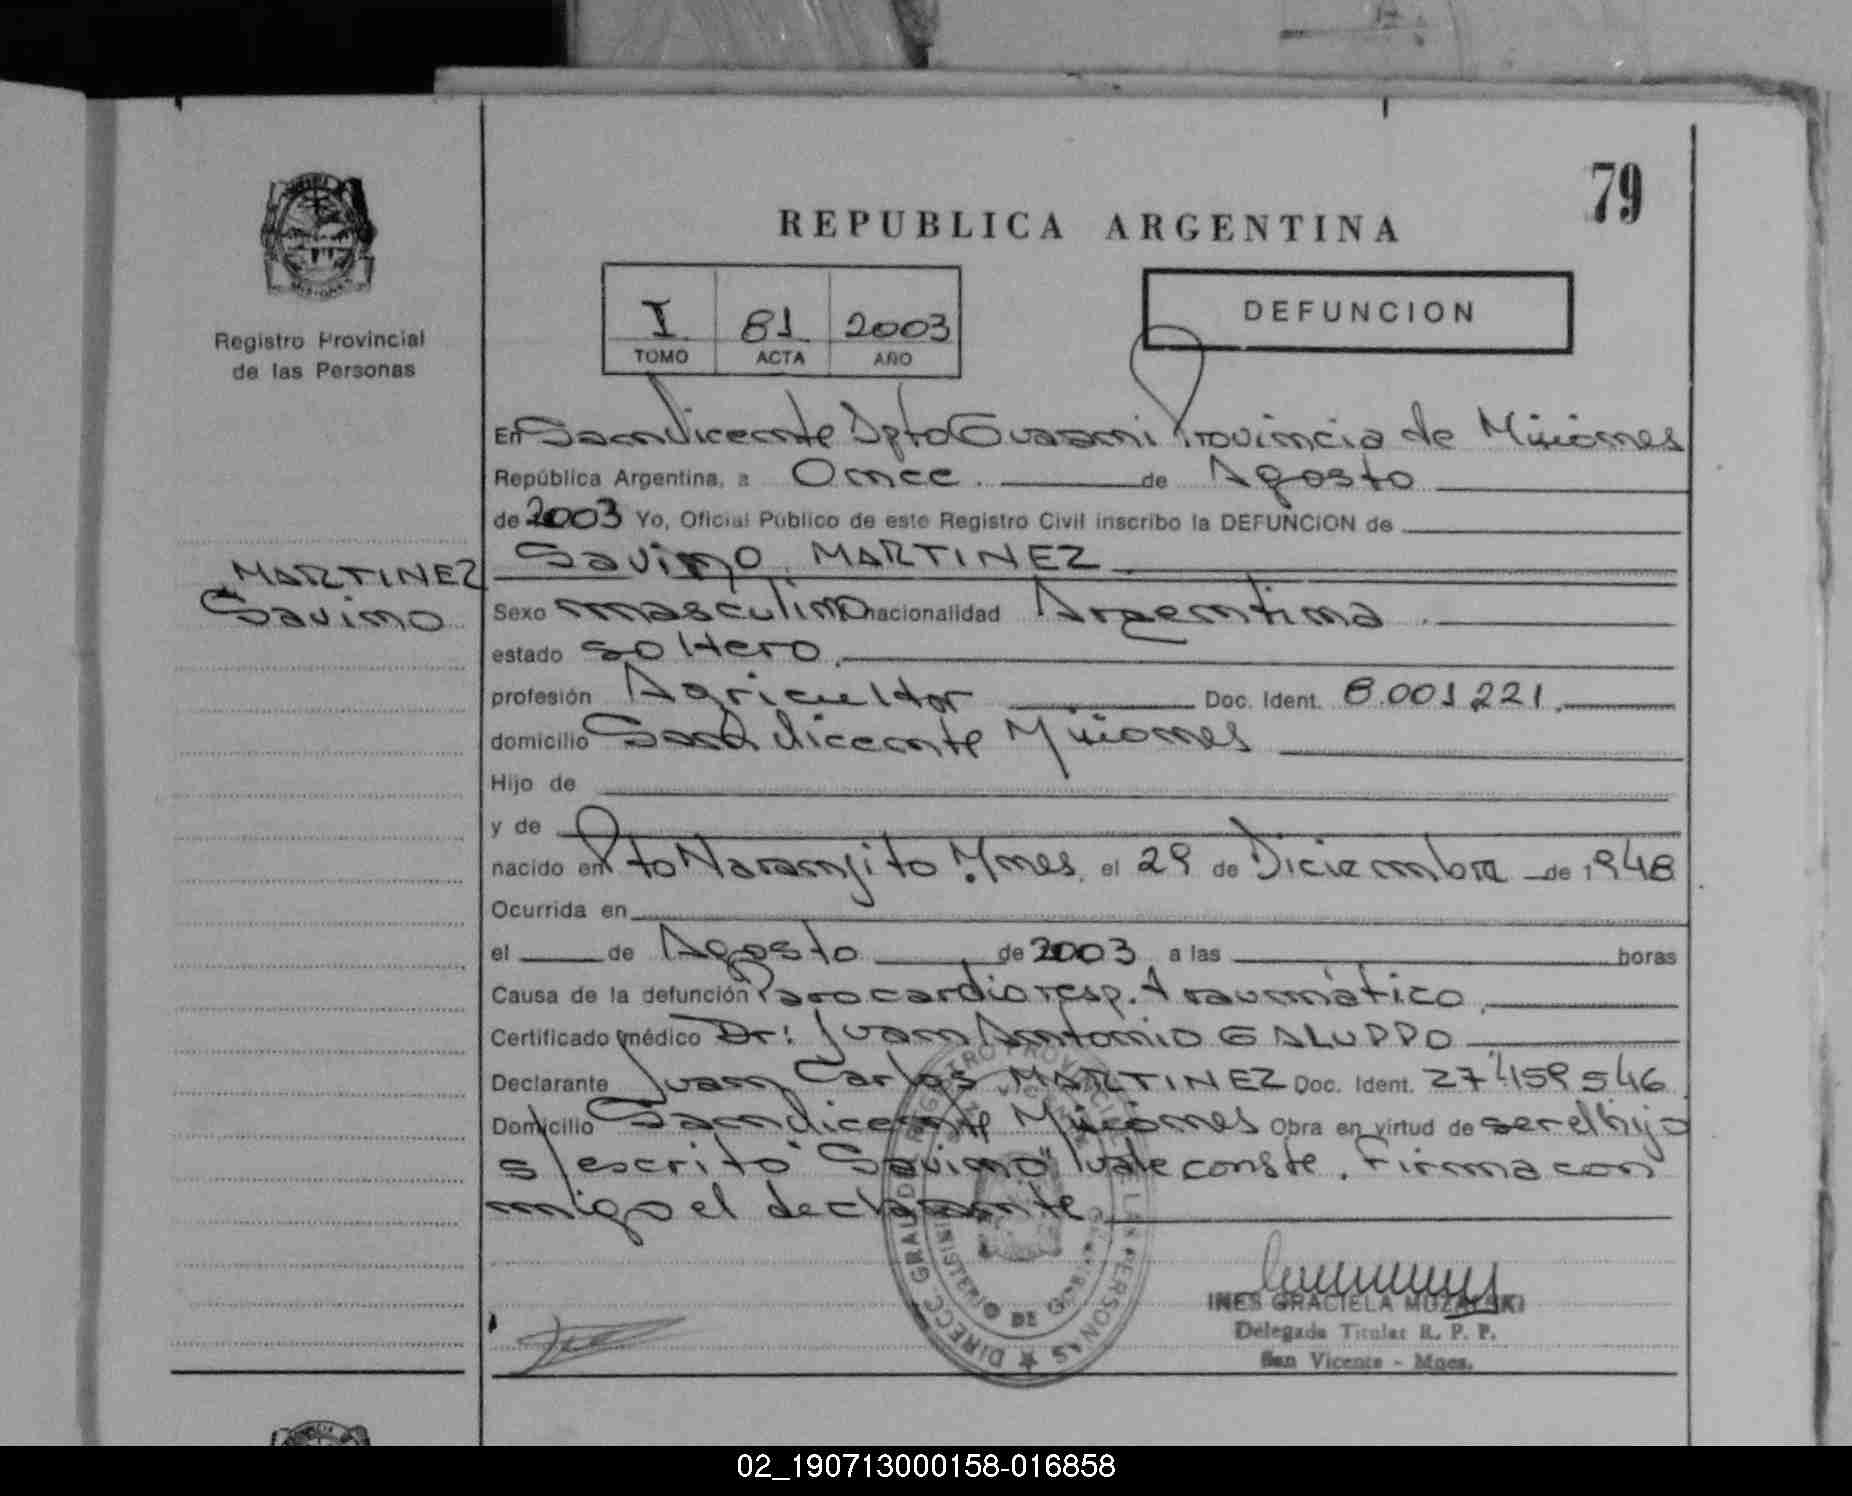 79
REPUBLICA ARGENTINA
Registro Provincial
de las Personas
I 81 2003
TOMO ACTA AÑO
DEFUNCION
En San Vicente Dpto Guaraní Provincia de Misiones
República Argentina, a Once de Agosto
de 2003 Yo, Oficial Público de este Registro Civil inscribo la DEFUNCION de
Savino MARTINEZ
MARTINEZ
Savino
Sexo masculino nacionalidad Argentina
estado soltero
profesión Agricultor Doc. Ident. 8.001.221
domicilio San Vicente Misiones
Hijo de
y de
nacido en Pto Naranjito Mnes. el 29 de Diciembre de 1948
Ocurrida en
el de Agosto de 2003 a las horas
Causa de la defunción Paro cardioresp. Traumático
Certificado médico Dr: Juan Antonio GALUPPO
Declarante Juan Carlos MARTINEZ Doc. Ident. 27.459.546
Domicilio San Vicente Misiones Obra en virtud de ser el hijo
s/escrito "Savino" vale conste. Firma con
migo el declarante
INES GRACIELA MUZALSKI
Delegada Titular R. P. P.
San Vicente - Mnes.
02_190713000158-016858